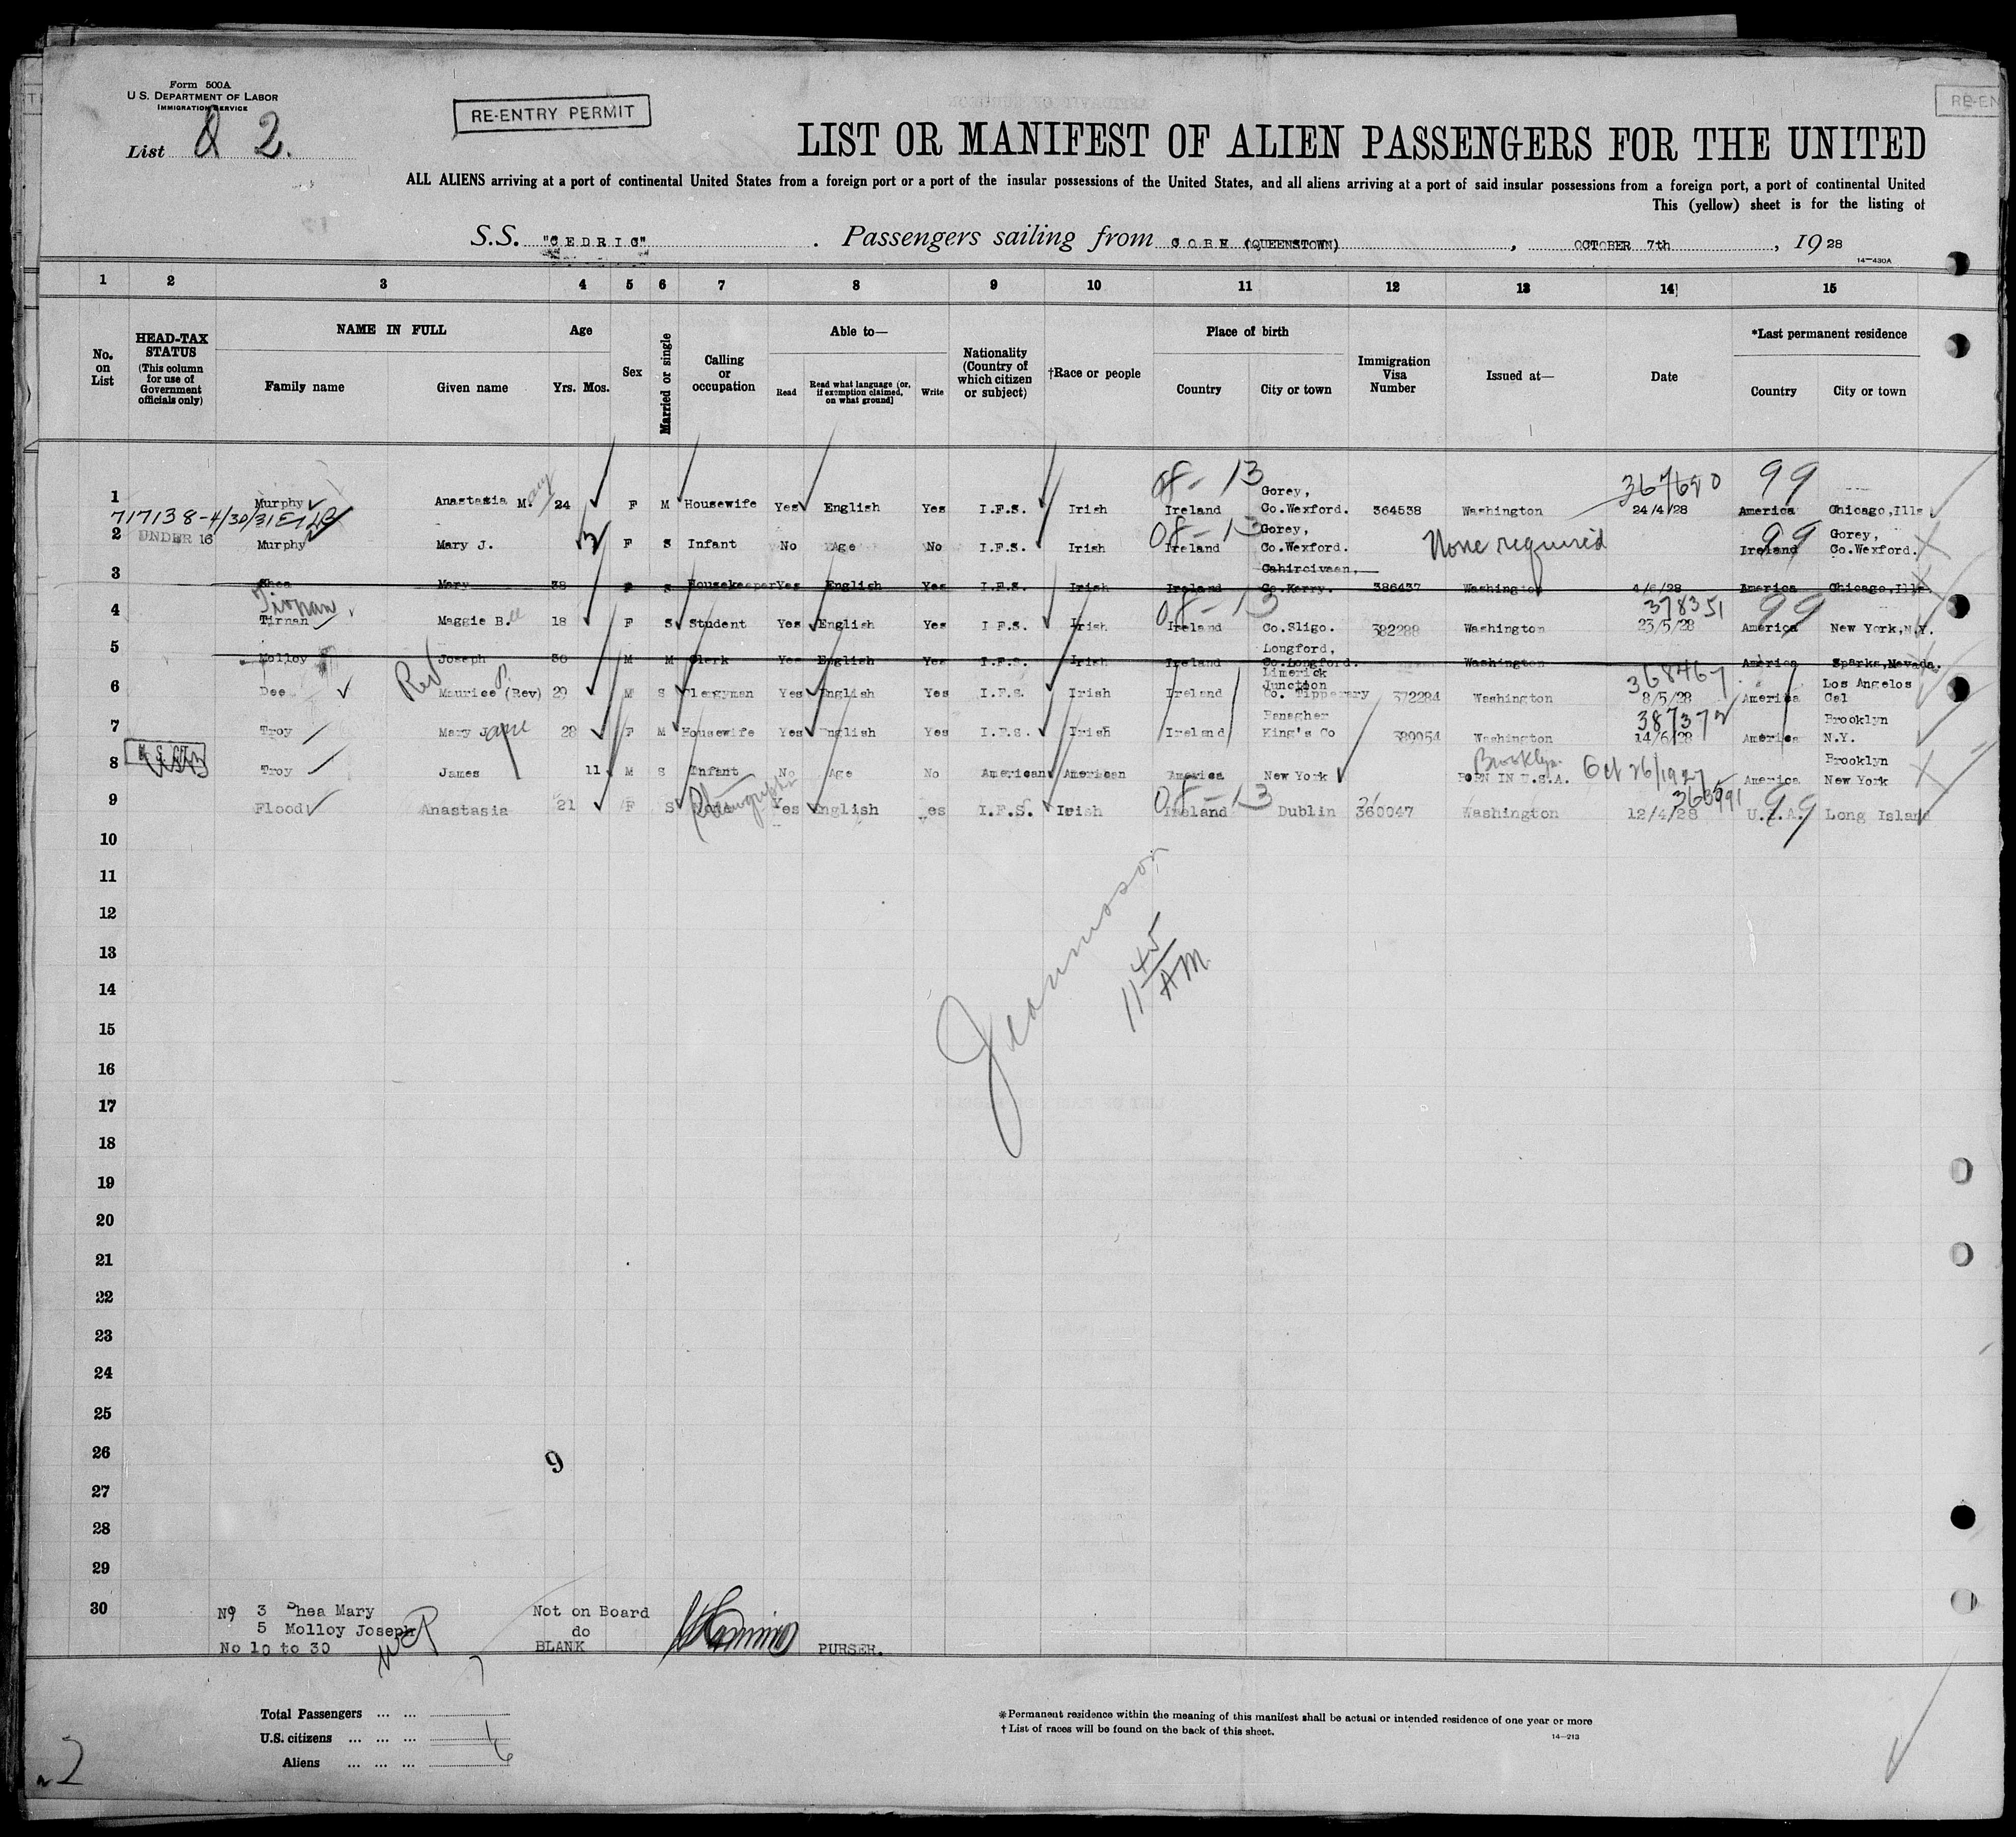 Form 500A
U.S. DEPARTMENT OF LABOR
IMMIGRATION SERVICE
List 2.
RE-ENTRY PERMIT
RE-EN
LIST OR MANIFEST OF ALIEN PASSENGERS FOR THE UNITED
ALL ALIENS arriving at a port of continental United States from a foreign port or a port of the insular possessions of the United States, and all aliens arriving at a port of said insular possessions from a foreign port, a port of continental United
This (yellow) sheet is for the listing of
S.S. "CEDRIC" . Passengers sailing from COBH (QUEENSTOWN) , OCTOBER 7th , 1928
14-430A
1 2 3 4 5 6 7 8 9 10 11 12 13 14 15
No. on List
HEAD-TAX STATUS (This column for use of Government officials only)
NAME IN FULL
Family name Given name
Age
Yrs. Mos.
Sex
Married or single
Calling or occupation
Able to—
Read Read what language (or, if exemption claimed, on what ground) Write
Nationality (Country of which citizen or subject)
†Race or people
Place of birth
Country City or town
Immigration Visa Number
Issued at—
Date
*Last permanent residence
Country City or town
08-13 367680 99
1 Murphy Anastasia M.ary 24 F M Housewife Yes English Yes I.F.S. Irish Ireland Gorey, Co.Wexford. 364538 Washington 24/4/28 America Chicago,Ills
717138-4/30/31
08-13 99
2 UNDER 16 Murphy Mary J. F S Infant No Age No I.F.S. Irish Ireland Gorey, Co.Wexford. None required Ireland Gorey, Co.Wexford.
3 Shea Mary 38 F S Housekeeper Yes English Yes I.F.S. Irish Ireland Cahirciveen, Co.Kerry. 386437 Washington 4/6/28 America Chicago,Ills.
Tirnan 08-13 378351 99
4 Tirnan Maggie B. 18 F S Student Yes English Yes I F.S. Irish Ireland Co.Sligo. 382288 Washington 23/5/28 America New York,N.Y.
5 Molloy Joseph 30 M M Clerk Yes English Yes I.F.S. Irish Ireland Longford, Co.Longford. Washington America Sparks,Nevada.
Rev P. 368467
6 Dee Maurice (Rev) 29 M S Clergyman Yes English Yes I.F.S. Irish Ireland Limerick Junction Co. Tipperary 372284 Washington 8/5/28 America Los Angelos Cal
387372
7 Troy Mary Jane 28 F M Housewife Yes English Yes I.F.S. Irish Ireland Banagher King's Co 389054 Washington 14/6/28 America Brooklyn N.Y.
Brooklyn
8 Troy James 11 M S Infant No Age No American American America New York BORN IN U.S.A. Oct 26/1927 America Brooklyn New York
08-13 99
9 Flood Anastasia 21 F S Yes English es I.F.S. Irish Ireland Dublin 360047 Washington 12/4/28 U.S.A. Long Island
10
11
12
13
14
15
16
17
18
19
20
21
22
23
24
25
26
27
28
29
30
11 45 AM
9
No 3 Shea Mary Not on Board
5 Molloy Joseph do
No 10 to 30 BLANK PURSER.
Total Passengers ... ...
U.S. citizens ... ... ... 1
Aliens ... ... ... 6
*Permanent residence within the meaning of this manifest shall be actual or intended residence of one year or more
†List of races will be found on the back of this sheet.
14-213
2